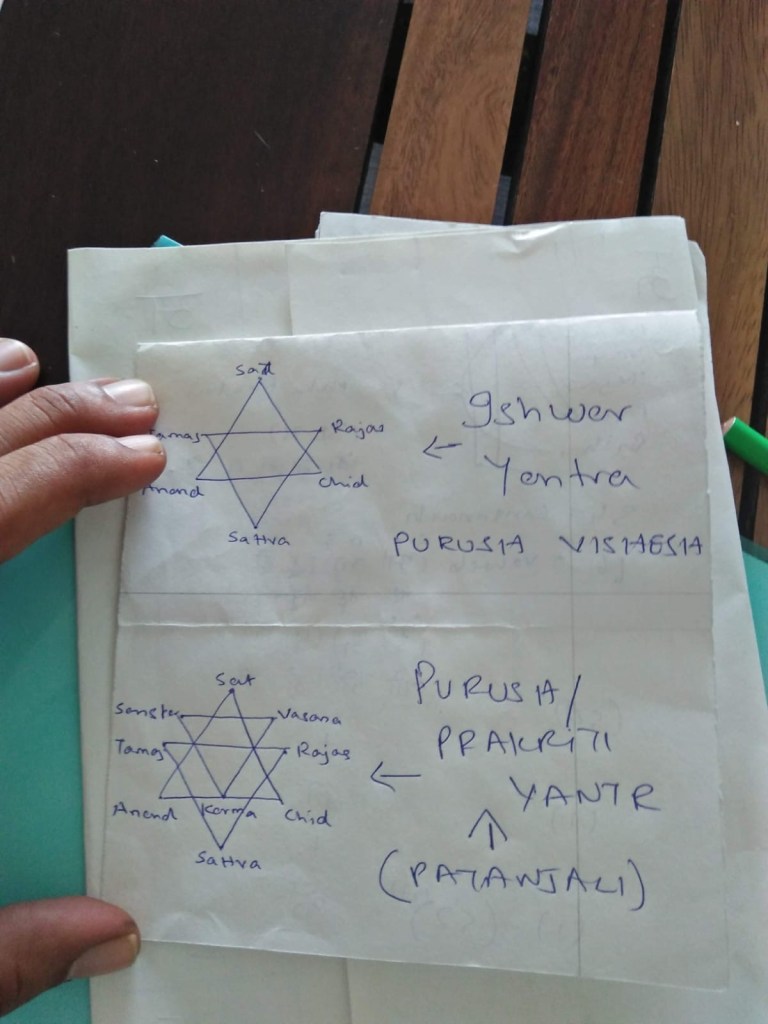 Sat
Tamas Rajas
Anand Chid
Sattva
Ishwar
Yantra
PURUSHA VISHAESHA
Sat
Sanskar Vasana
Tamas Rajas
Anand Karma Chid
Sattva
PURUSHA/
PRAKRITI
YANTR
(PATANJALI)